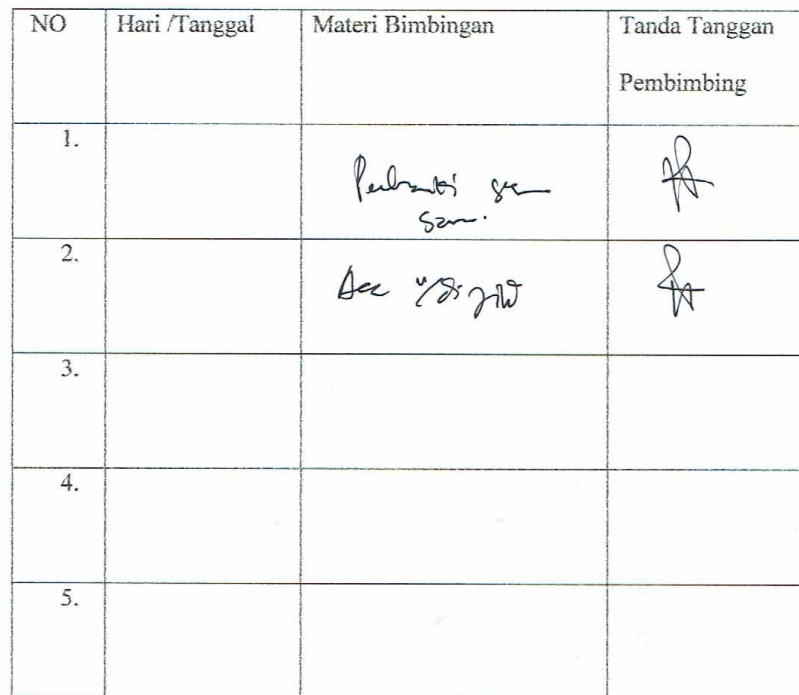 NO Hari /Tanggal Materi Bimbingan Tanda Tanggan
Pembimbing
1.
2.
Acc
3.
4.
5.